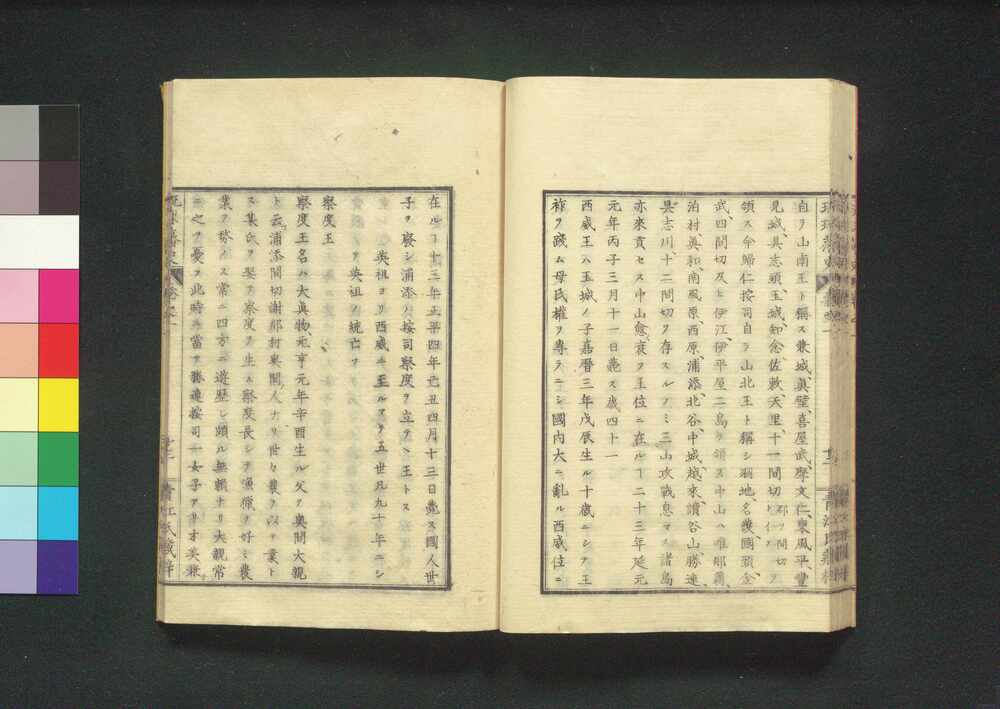 自ヲ山南王ト稱ス兼城、眞壁、喜屋武、摩文仁、東風平、豐
見城、具志頭、玉城、知念、佐敷、大里十一間切
領ス今歸仁按司自ラ山北王ト稱シ羽地、名護、國頭、金
武、四間切及ヒ伊江、伊平屋二島ヲ領ス中山ハ唯那覇
泊村、眞和、南風原、西原、浦添、北谷、中城、越來、讀谷山、勝連、
具志川、十二間切ヲ存スルノミ三山攻戰息マス諸島
亦來貢セス中山愈衰フ王位ニ在ルヿ二十三年延元
元年丙子三月十一日薨ス歳四十一
西威王ハ玉城ノ子嘉暦三年戊辰生ル十歳ニシテ王
祚ヲ踐ム母氏權ヲ專ラニシ國内大ニ亂ル西威位ニ
在ルヿ十三年正平四年己丑四月十三日薨ス國人世
子ヲ廢シ浦添ノ按司察度ヲ立テヽ王トス
英祖ヨリ西威ニ至ルマテ五世凡九十年ニシ
テ英祖ノ統亡フ
察度王
察度王名ハ大眞物元亨元年辛酉生ル父ヲ奧間大親
ト云フ浦添間切謝那村奧間ノ人ナリ世々農ヲ以テ業ト
ス某氏ヲ娶テ察度ヲ生ム察度長シテ漁獵ヲ好ミ農
業ヲ務メス常ニ四方ニ遊歴シ頗ル無頼ナリ大親常
ニ之ヲ憂フ此時ニ當テ勝連按司一女子アリ才美兼